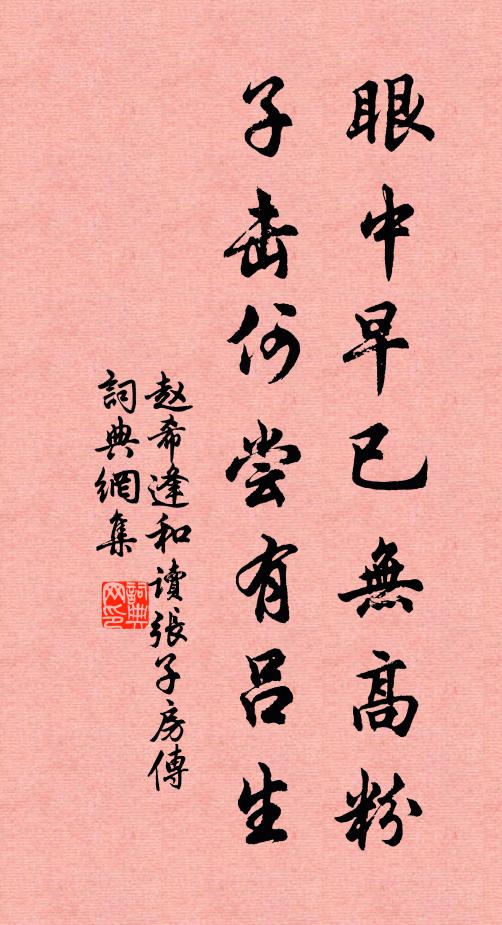 眼中早已無高粉
子击何尝有吕生
赵希逢和讀張子房傳
詞典網集
詞典网印